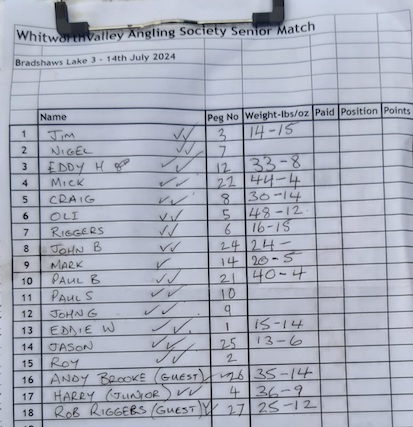 Whitworth Valley Angling Society Senior Match
Bradshaws Lake 3 - 14th July 2024
Name Peg No Weight-lbs/oz Paid Position Points
1 JIM 3 14-15
2 NIGEL 7
3 EDDY H 12 33-8
4 MICK 22 44-4
5 CRAIG 8 30-14
6 OLI 5 48-12
7 RIGGERS 6 16-15
8 JOHN B 24 24-
9 MARK 14 20-5
10 PAUL B 21 40-4
11 PAUL S 10
12 JOHN G 9
13 EDDIE W 1 15-14
14 JASON 25 13-6
15 ROY 2
16 ANDY BROOKE (GUEST) 26 35-14
17 HARRY (JUNIOR) 4 36-9
18 ROB RIGGERS (GUEST) 27 25-12